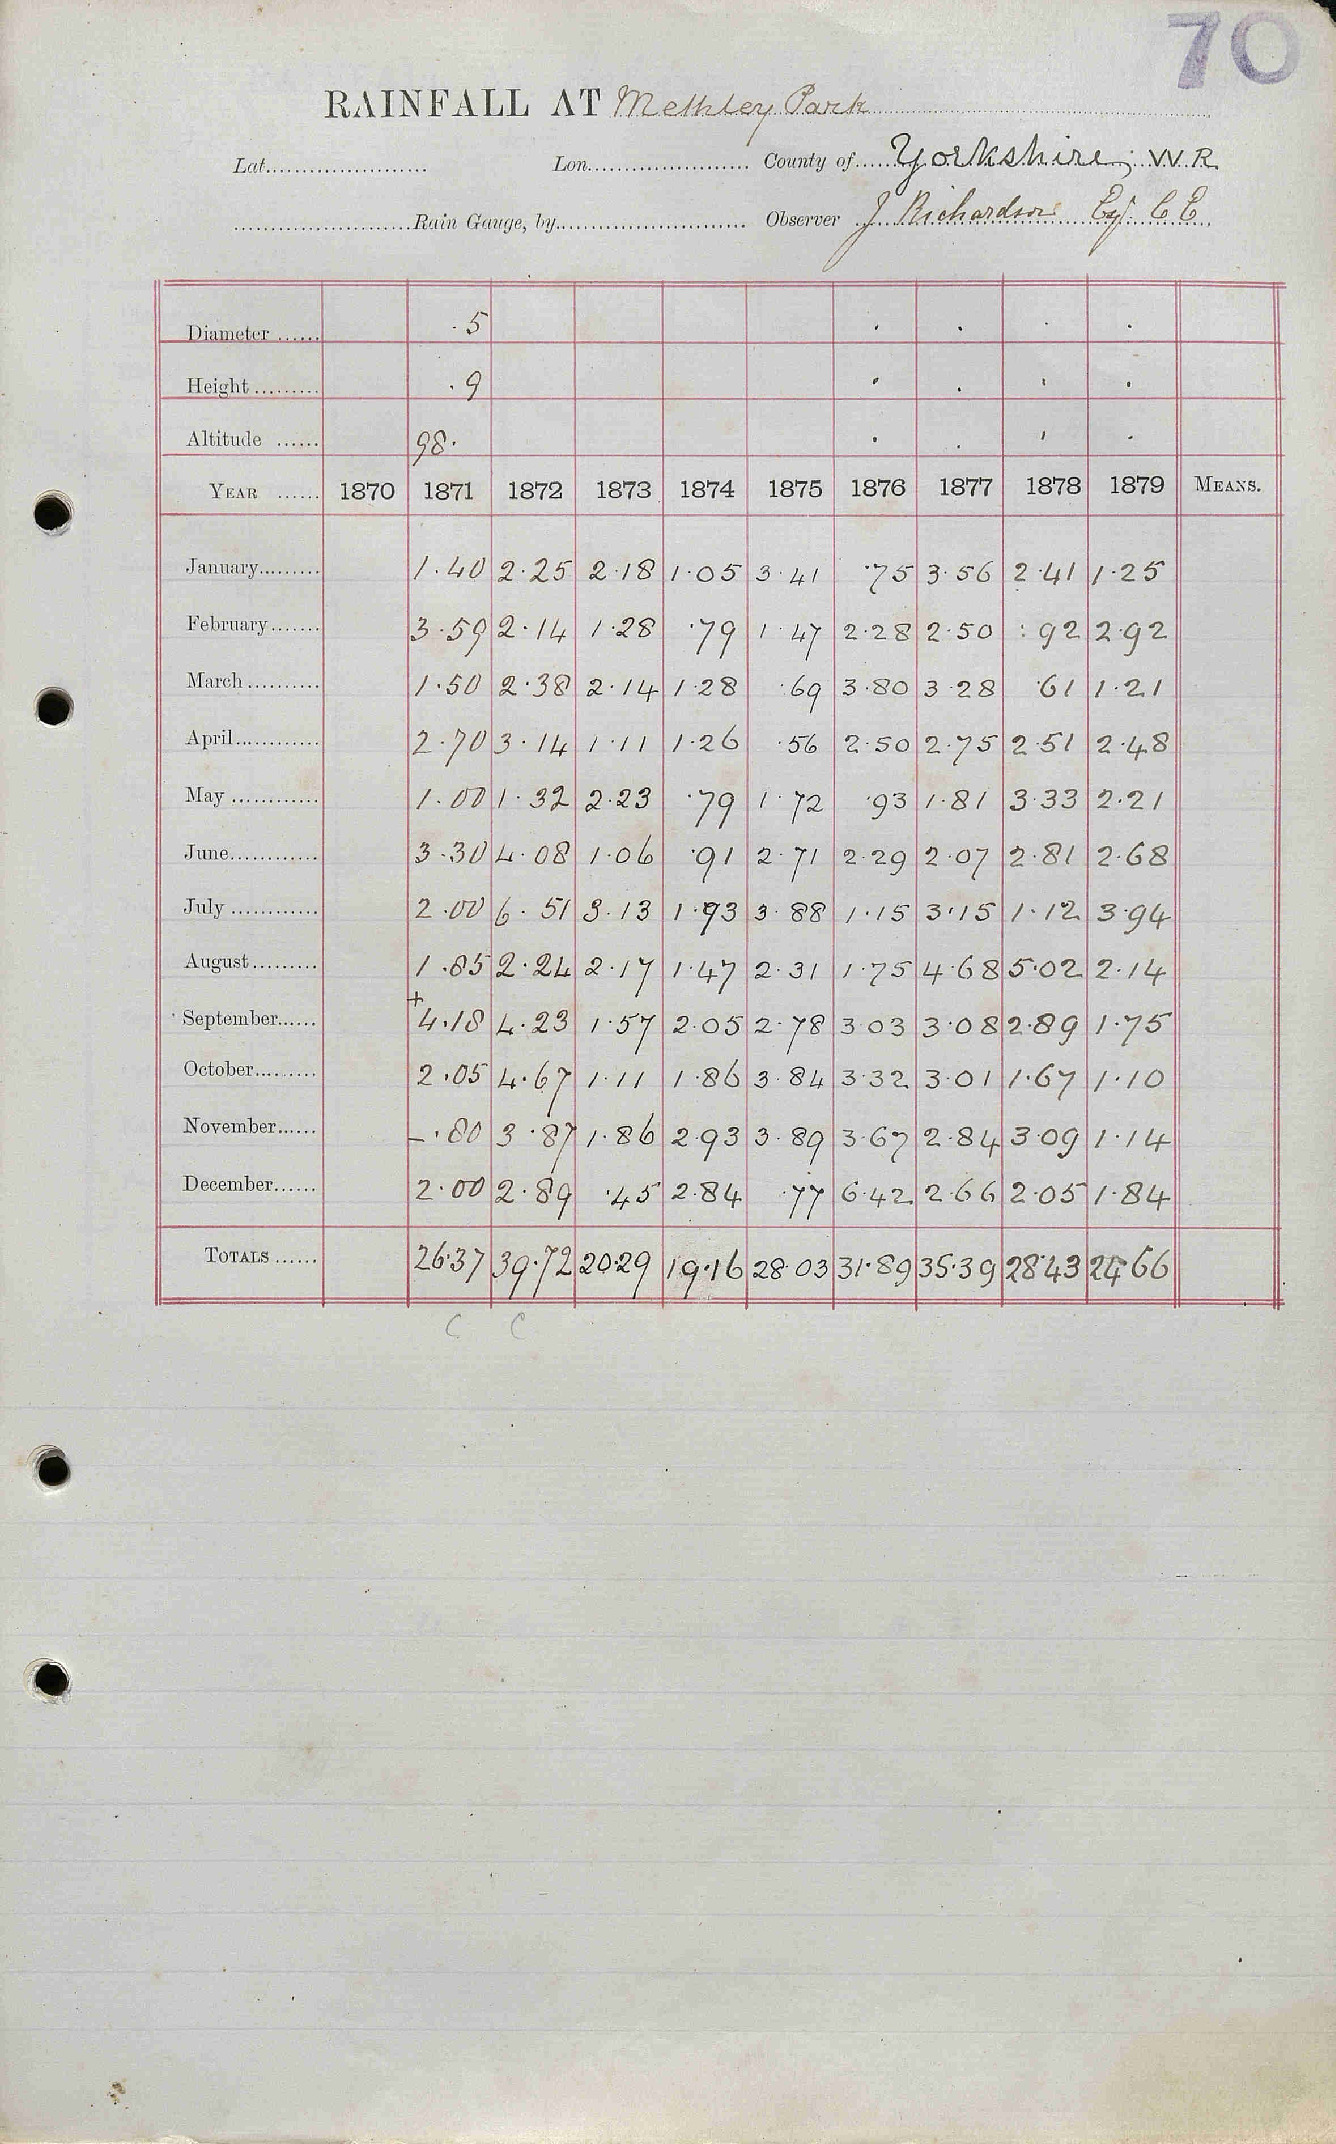 70
RAINFALL AT Methley Park
Lat. Lon. County of Yorkshire, W R
Rain Gauge, by Observer J Richardson Esq C E
Diameter .5 . . . .
Height .9 . . . .
Altitude 98. . . . .
YEAR 1870 1871 1872 1873 1874 1875 1876 1877 1878 1879 MEANS.
January 1.40 2.25 2.18 1.05 3.41 .75 3.56 2.41 1.25
February 3.59 2.14 1.28 .79 1.47 2.28 2.50 .92 2.92
March 1.50 2.38 2.14 1.28 .69 3.80 3.28 .61 1.21
April 2.70 3.14 1.11 1.26 .56 2.50 2.75 2.51 2.48
May 1.00 1.32 2.23 .79 1.72 .93 1.81 3.33 2.21
June 3.30 4.08 1.06 .91 2.71 2.29 2.07 2.81 2.68
July 2.00 6.51 3.13 1.93 3.88 1.15 3.15 1.12 3.94
August 1.85 2.24 2.17 1.47 2.31 1.75 4.68 5.02 2.14
September +4.18 4.23 1.57 2.05 2.78 3.03 3.08 2.89 1.75
October 2.05 4.67 1.11 1.86 3.84 3.32 3.01 1.67 1.10
November -.80 3.87 1.86 2.93 3.89 3.67 2.84 3.09 1.14
December 2.00 2.89 .45 2.84 .77 6.42 2.66 2.05 1.84
TOTALS 26.37 39.72 20.29 19.16 28.03 31.89 35.39 28.43 24.66
C C